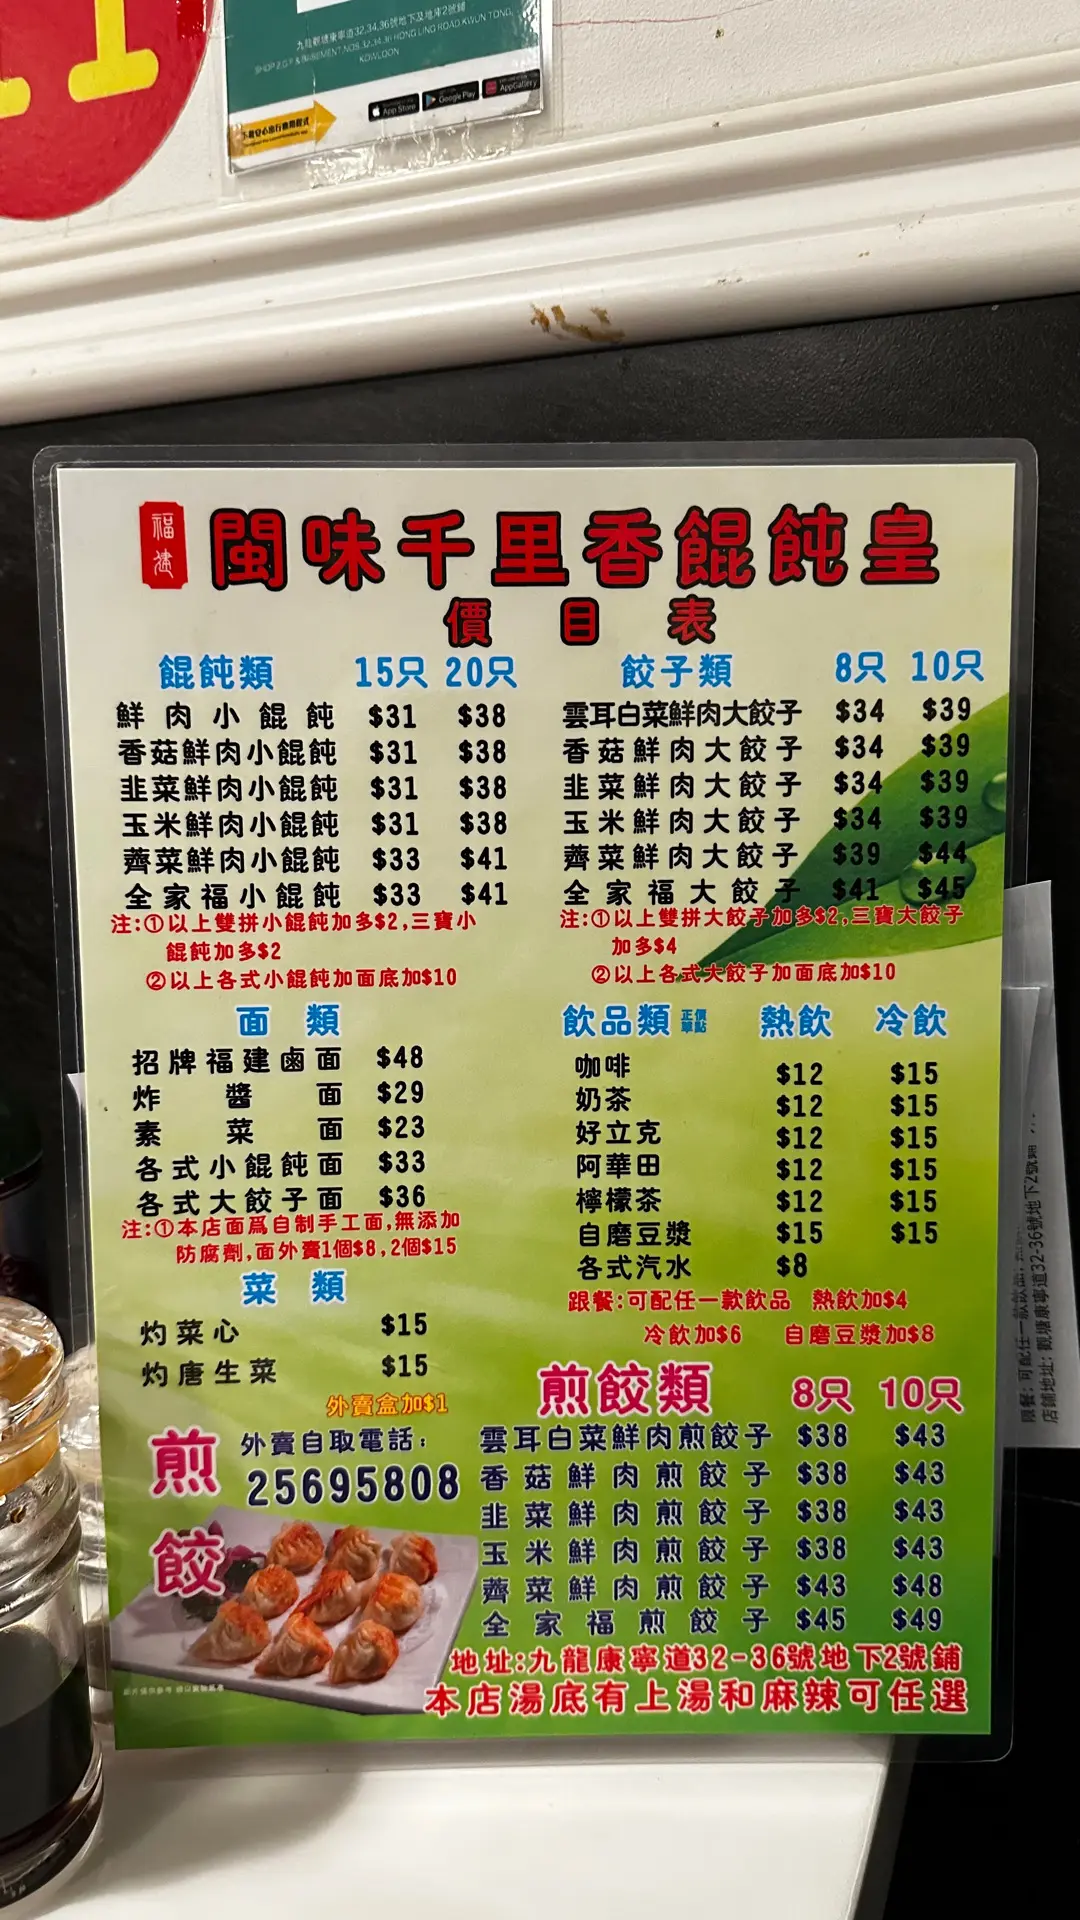 九龍觀塘康寧道32,34,36號地下及地庫2號鋪
SHOP 2,G/F & BASEMENT,NOS.32,34,36 HONG LING ROAD,KWUN TONG,
KOWLOON
App Store
Google Play
AppGallery
福建
閩味千里香餛飩皇
價目表
餛飩類 15只 20只
鮮肉小餛飩 $31 $38
香菇鮮肉小餛飩 $31 $38
韭菜鮮肉小餛飩 $31 $38
玉米鮮肉小餛飩 $31 $38
薺菜鮮肉小餛飩 $33 $41
全家福小餛飩 $33 $41
注:①以上雙拼小餛飩加多$2,三寶小
餛飩加多$2
②以上各式小餛飩加面底加$10
餃子類 8只 10只
雲耳白菜鮮肉大餃子 $34 $39
香菇鮮肉大餃子 $34 $39
韭菜鮮肉大餃子 $34 $39
玉米鮮肉大餃子 $34 $39
薺菜鮮肉大餃子 $39 $44
全家福大餃子 $41 $45
注:①以上雙拼大餃子加多$2,三寶大餃子
加多$4
②以上各式大餃子加面底加$10
面類
招牌福建鹵面 $48
炸醬面 $29
素菜面 $23
各式小餛飩面 $33
各式大餃子面 $36
注:①本店面爲自制手工面,無添加
防腐劑,面外賣1個$8,2個$15
菜類
灼菜心 $15
灼唐生菜 $15
外賣盒加$1
飲品類 正價單點 熱飲 冷飲
咖啡 $12 $15
奶茶 $12 $15
好立克 $12 $15
阿華田 $12 $15
檸檬茶 $12 $15
自磨豆漿 $15 $15
各式汽水 $8
跟餐:可配任一款飲品 熱飲加$4
冷飲加$6 自磨豆漿加$8
煎餃
外賣自取電話:
25695808
煎餃類 8只 10只
雲耳白菜鮮肉煎餃子 $38 $43
香菇鮮肉煎餃子 $38 $43
韭菜鮮肉煎餃子 $38 $43
玉米鮮肉煎餃子 $38 $43
薺菜鮮肉煎餃子 $43 $48
全家福煎餃子 $45 $49
地址:九龍康寧道32-36號地下2號鋪
本店湯底有上湯和麻辣可任選
跟餐:可配任一款飲品,
店鋪地址:觀塘康寧道32-36號地下2號鋪